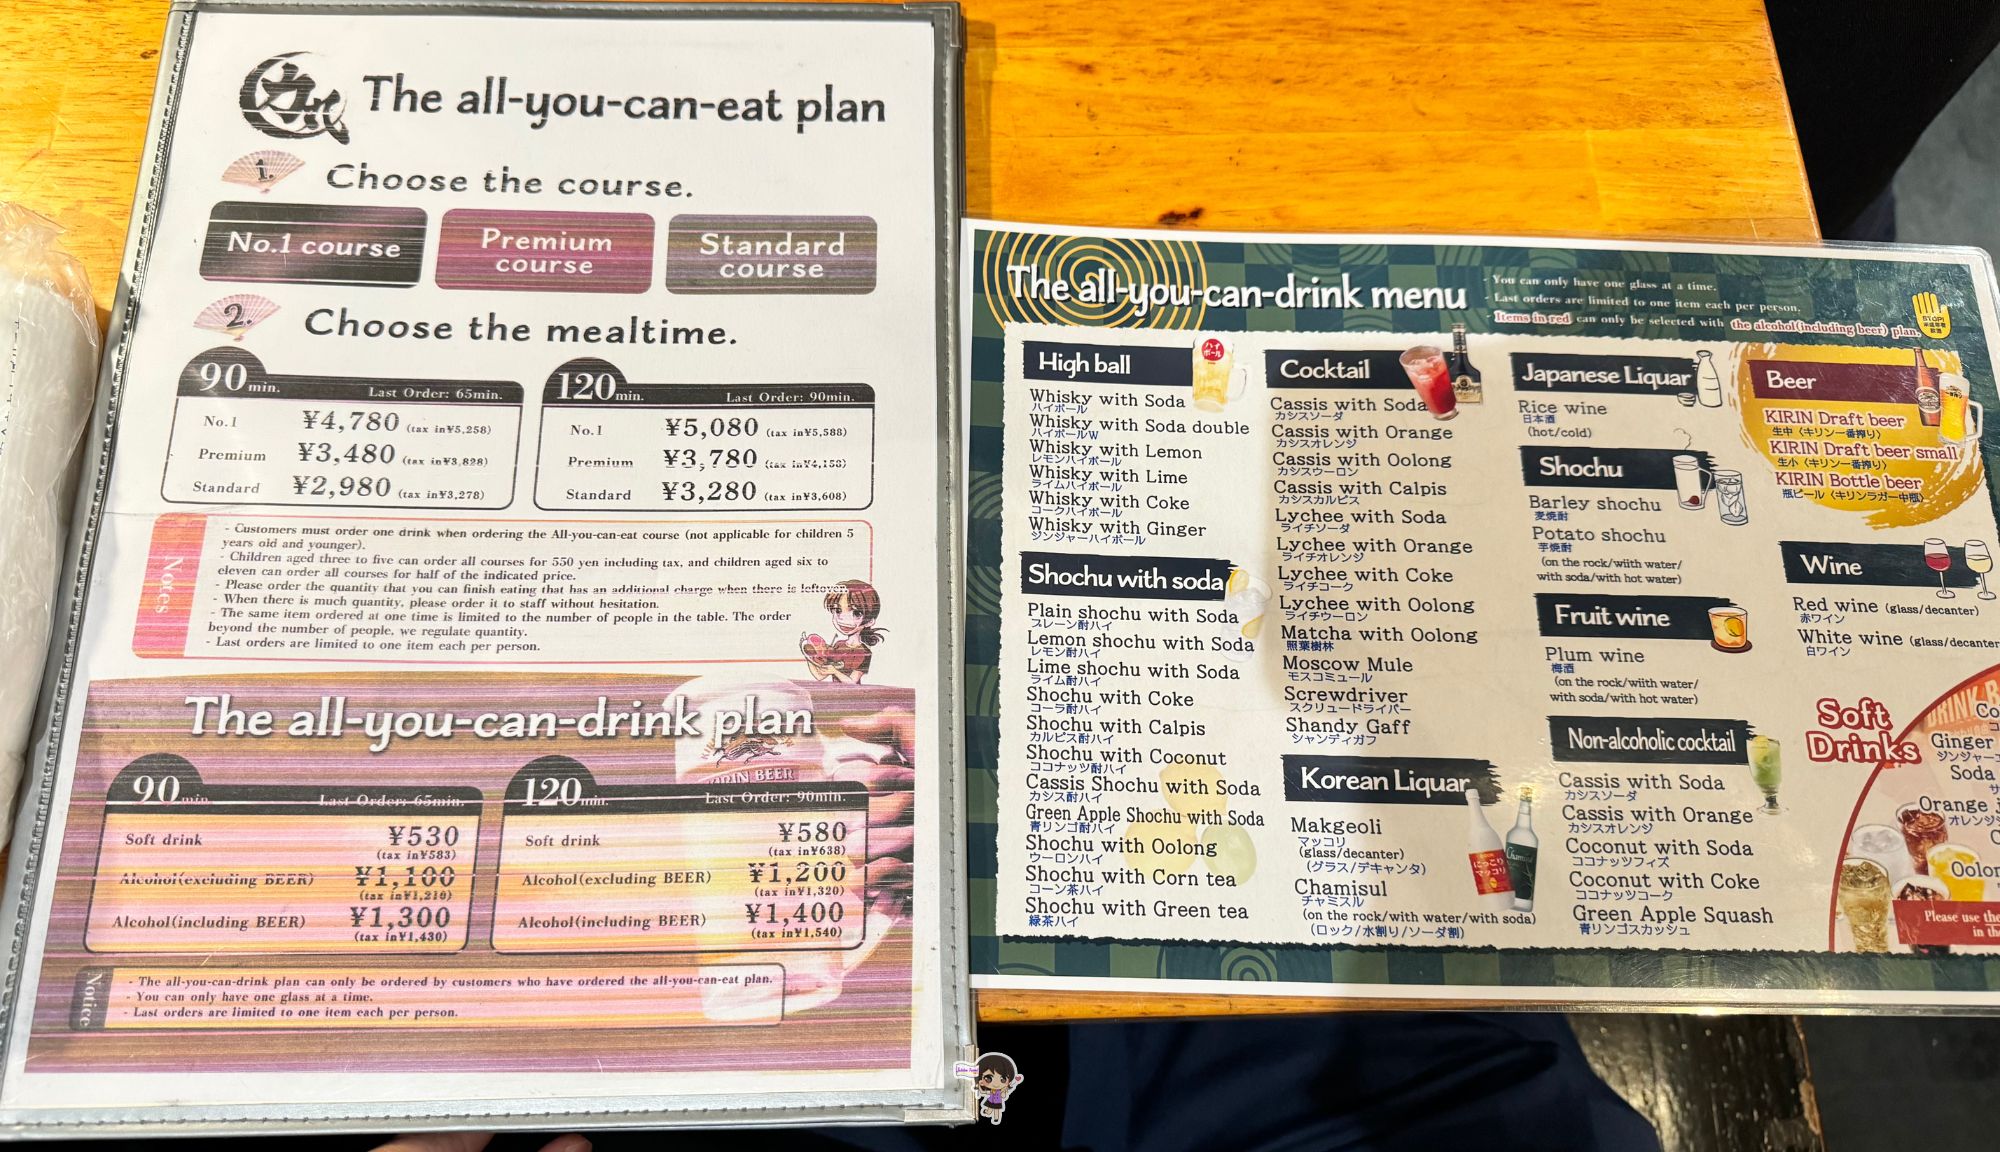 The all-you-can-eat plan
1.
Choose the course.
No.1 course
Premium course
Standard course
2.
Choose the mealtime.
90 min. Last Order: 65min.
No.1 ¥4,780 (tax in¥5,258)
Premium ¥3,480 (tax in¥3,828)
Standard ¥2,980 (tax in¥3,278)
120 min. Last Order: 90min.
No.1 ¥5,080 (tax in¥5,588)
Premium ¥3,780 (tax in¥4,158)
Standard ¥3,280 (tax in¥3,608)
Notes
- Customers must order one drink when ordering the All-you-can-eat course (not applicable for children 5
years old and younger).
- Children aged three to five can order all courses for 550 yen including tax, and children aged six to
eleven can order all courses for half of the indicated price.
- Please order the quantity that you can finish eating that has an additional charge when there is leftover.
- When there is much quantity, please order it to staff without hesitation.
- The same item ordered at one time is limited to the number of people in the table. The order
beyond the number of people, we regulate quantity.
- Last orders are limited to one item each per person.
The all-you-can-drink plan
KIRIN BEER
90 min. Last Order: 65min.
Soft drink ¥530
(tax in¥583)
Alcohol(excluding BEER) ¥1,100
(tax in¥1,210)
Alcohol(including BEER) ¥1,300
(tax in¥1,430)
120 min. Last Order: 90min.
Soft drink ¥580
(tax in¥638)
Alcohol(excluding BEER) ¥1,200
(tax in¥1,320)
Alcohol(including BEER) ¥1,400
(tax in¥1,540)
Notice
- The all-you-can-drink plan can only be ordered by customers who have ordered the all-you-can-eat plan.
- You can only have one glass at a time.
- Last orders are limited to one item each per person.
The all-you-can-drink menu
- You can only have one glass at a time.
- Last orders are limited to one item each per person.
- Items in red can only be selected with the alcohol(including beer) plan.
STOP!
未成年者
飲酒
High ball
ハイボール
Whisky with Soda
ハイボール
Whisky with Soda double
ハイボールW
Whisky with Lemon
レモンハイボール
Whisky with Lime
ライムハイボール
Whisky with Coke
コークハイボール
Whisky with Ginger
ジンジャーハイボール
Shochu with soda
Plain shochu with Soda
プレーン酎ハイ
Lemon shochu with Soda
レモン酎ハイ
Lime shochu with Soda
ライム酎ハイ
Shochu with Coke
コーラ酎ハイ
Shochu with Calpis
カルピス酎ハイ
Shochu with Coconut
ココナッツ酎ハイ
Cassis Shochu with Soda
カシス酎ハイ
Green Apple Shochu with Soda
青リンゴ酎ハイ
Shochu with Oolong
ウーロンハイ
Shochu with Corn tea
コーン茶ハイ
Shochu with Green tea
緑茶ハイ
Cocktail
Cassis with Soda
カシスソーダ
Cassis with Orange
カシスオレンジ
Cassis with Oolong
カシスウーロン
Cassis with Calpis
カシスカルピス
Lychee with Soda
ライチソーダ
Lychee with Orange
ライチオレンジ
Lychee with Coke
ライチコーク
Lychee with Oolong
ライチウーロン
Matcha with Oolong
照葉樹林
Moscow Mule
モスコミュール
Screwdriver
スクリュードライバー
Shandy Gaff
シャンディガフ
Korean Liquar
Makgeoli
マッコリ
(glass/decanter)
(グラス/デキャンタ)
Chamisul
チャミスル
(on the rock/with water/with soda)
(ロック/水割り/ソーダ割)
にっこり
マッコリ
Japanese Liquar
Rice wine
日本酒
(hot/cold)
Shochu
Barley shochu
麦焼酎
Potato shochu
芋焼酎
(on the rock/wiith water/
with soda/with hot water)
Fruit wine
Plum wine
梅酒
(on the rock/wiith water/
with soda/with hot water)
Non-alcoholic cocktail
Cassis with Soda
カシスソーダ
Cassis with Orange
カシスオレンジ
Coconut with Soda
ココナッツフィズ
Coconut with Coke
ココナッツコーク
Green Apple Squash
青リンゴスカッシュ
Beer
KIRIN Draft beer
生中〈キリン一番搾り〉
KIRIN Draft beer small
生小〈キリン一番搾り〉
KIRIN Bottle beer
瓶ビール〈キリンラガー中瓶〉
Wine
Red wine (glass/decanter)
赤ワイン
White wine (glass/decanter
白ワイン
Soft
Drinks
DRINK B
Co
コ
Ginger
ジンジャーエ
Soda
サ
Orange j
オレンジジ
C
Oolon
Please use the
in th